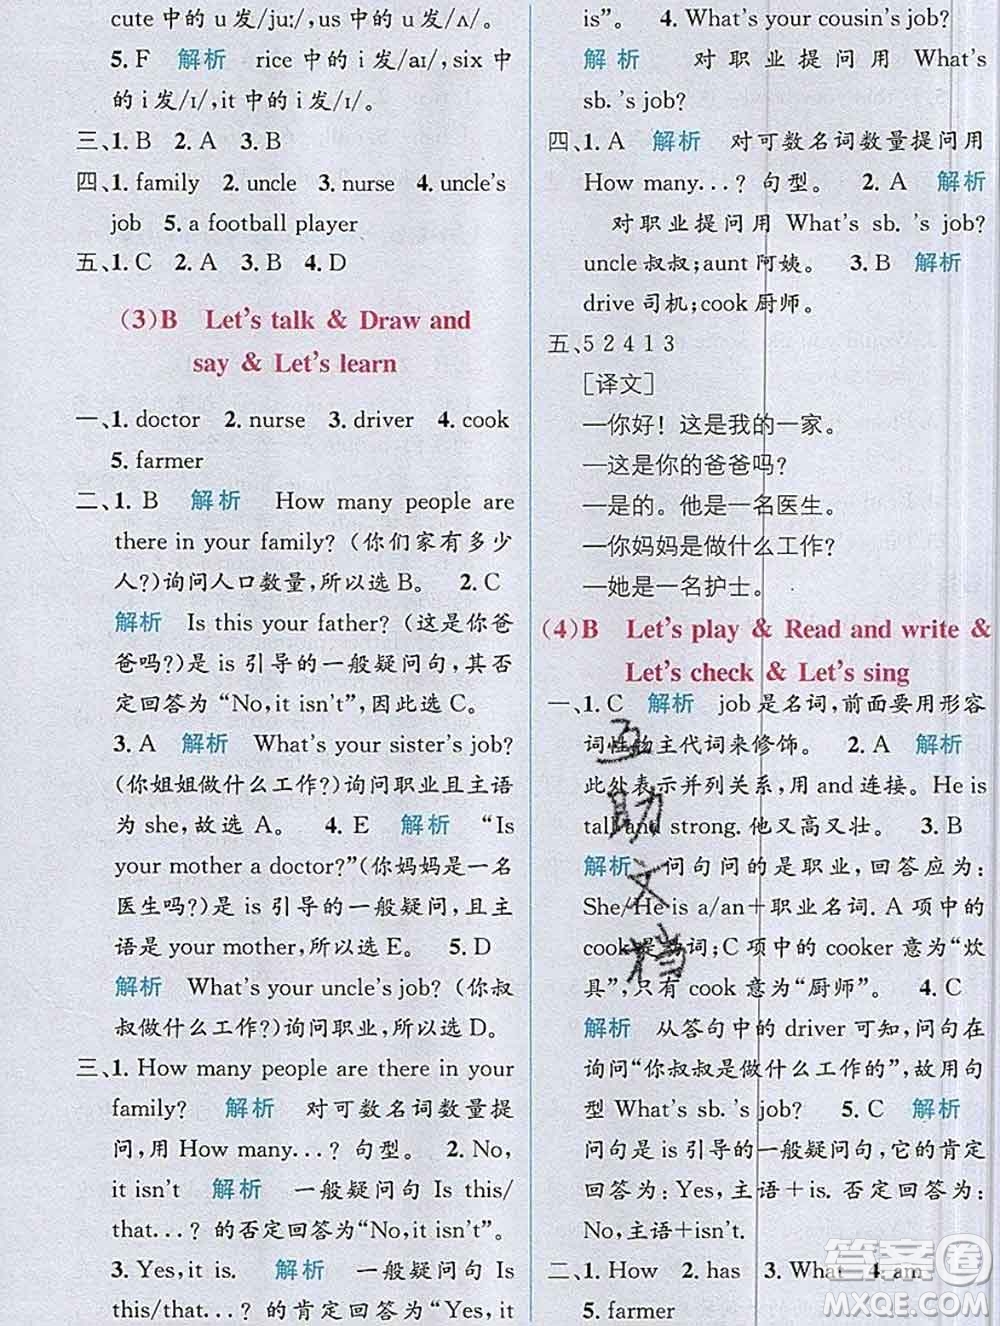 cute 中的 u 发/juː/,us 中的 u 发/ʌ/。
5. F 解析 rice 中的 i 发/aɪ/,six 中
的 i 发/ɪ/,it 中的 i 发/ɪ/。
三、1. B 2. A 3. B
四、1. family 2. uncle 3. nurse 4. uncle's
job 5. a football player
五、1. C 2. A 3. B 4. D
(3)B Let's talk & Draw and
say & Let's learn
一、1. doctor 2. nurse 3. driver 4. cook
5. farmer
二、1. B 解析 How many people are
there in your family? (你们家有多少
人?)询问人口数量,所以选 B。 2. C
解析 Is this your father? (这是你爸
爸吗?)是 is 引导的一般疑问句,其否
定回答为“No,it isn't”,因此选 C。
3. A 解析 What's your sister's job?
(你姐姐做什么工作?)询问职业且主语
为 she,故选 A。 4. E 解析 “Is
your mother a doctor?”(你妈妈是一名
医生吗?)是 is 引导的一般疑问,且主
语是 your mother,所以选 E。 5. D
解析 What's your uncle's job? (你叔
叔做什么工作?)询问职业,所以选 D。
三、1. How many people are there in your
family? 解析 对可数名词数量提
问,用 How many. . . ? 句型。 2. No,
it isn't 解析 一般疑问句 Is this/
that. . . ? 的否定回答为“No,it isn't”。
3. Yes,it is. 解析 一般疑问句 Is
this/that. . . ? 的肯定回答为“Yes,it
is”。 4. What's your cousin's job?
解析 对职业提问用 What's
sb. 's job?
四、1. A 解析 对可数名词数量提问用
How many. . . ? 句型。 2. A 解析
对职业提问用 What's sb. 's job?
uncle 叔叔;aunt 阿姨。 3. B 解析
drive 司机;cook 厨师。
五、5 2 4 1 3
[译文]
—你好!这是我的一家。
—这是你的爸爸吗?
—是的。他是一名医生。
—你妈妈是做什么工作?
—她是一名护士。
(4)B Let's play & Read and write &
Let's check & Let's sing
一、1. C 解析 job 是名词,前面要用形容
词性物主代词来修饰。 2. A 解析
此处表示并列关系,用 and 连接。He is
tall and strong. 他又高又壮。 3. B
解析 问句问的是职业,回答应为:
She/He is a/an+职业名词. A 项中的
cook 是动词;C 项中的 cooker 意为“炊
具”,只有 cook 意为“厨师”。 4. C
解析 从答句中的 driver 可知,问句在
询问“你叔叔是做什么工作的”,故用句
型 What's sb. 's job? 5. C 解析
问句是 is 引导的一般疑问句,它的肯定
回答为:Yes,主语+is. 否定回答为:
No,主语+isn't.
二、1. How 2. has 3. What 4. am
5. farmer
互
助
文
档
答案圈
MXQE.COM